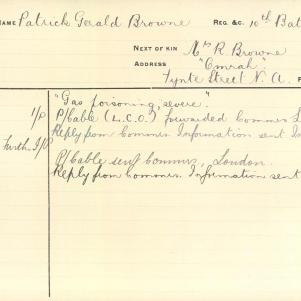 NAME Patrick Gerald Browne REG. &C. 10th Bat
NEXT OF KIN Mrs R Browne
ADDRESS "Omrah"
Tynte Street N. A.
"Gas poisoning, severe."
1/p P/Cable (L.C.O.) forwarded Commrs L
Reply from Commrs Information sent I
Furth. I/P P/Cable sent Commrs, London.
Reply from Commrs. Information sent